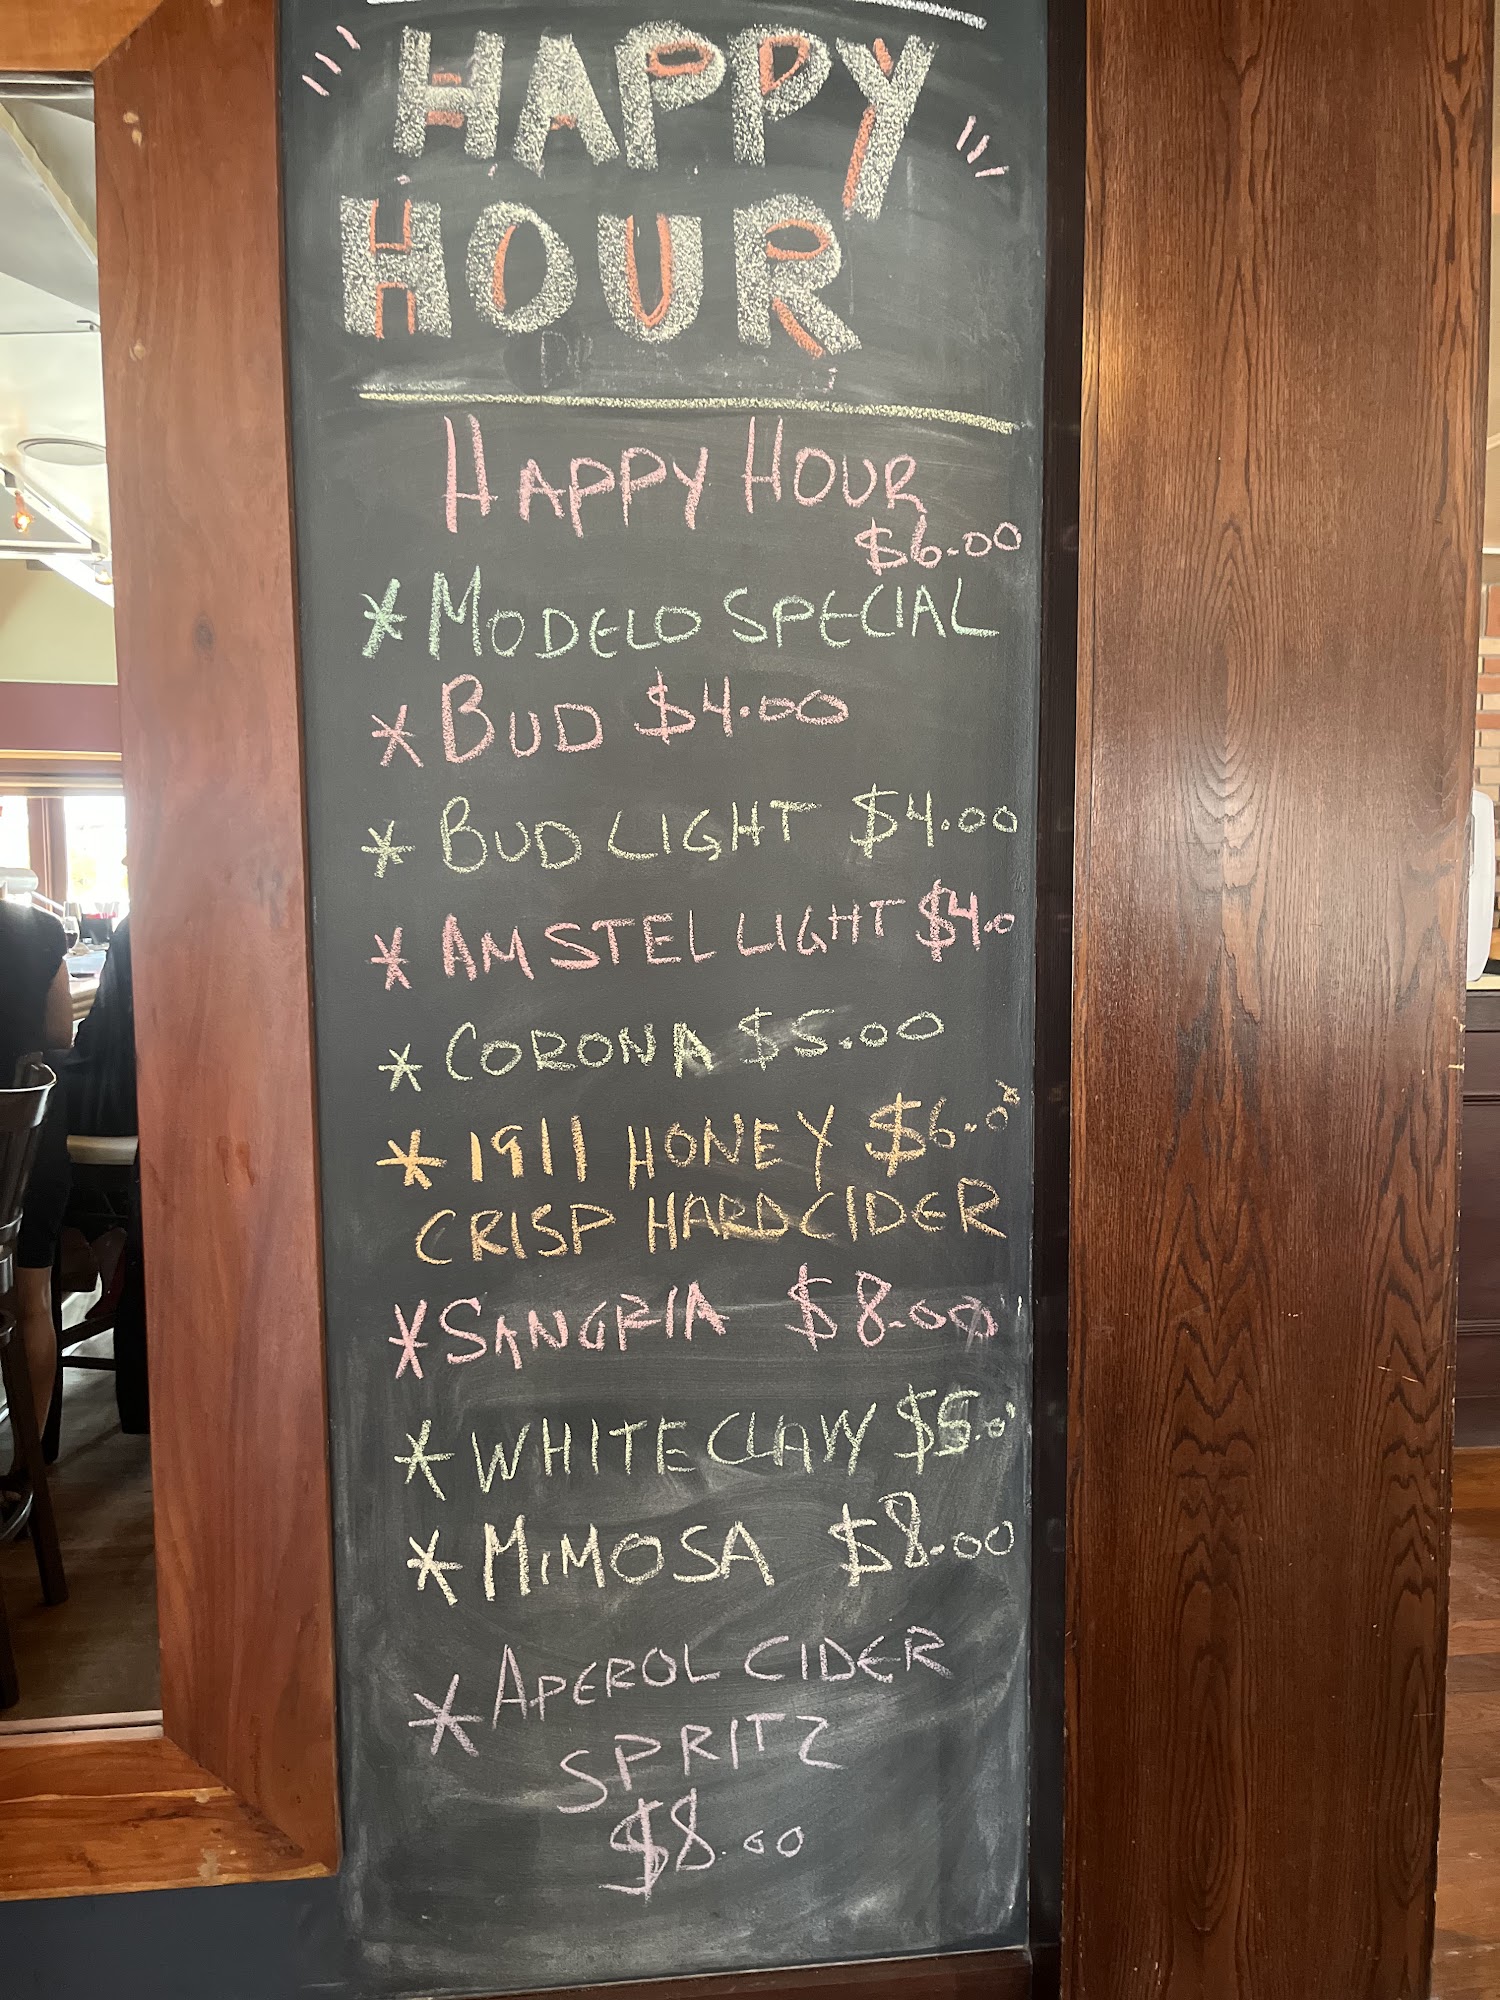 HAPPY
HOUR
HAPPY HOUR
$6.00
* MODELO SPECIAL
* BUD $4.00
* BUD LIGHT $4.00
* AMSTEL LIGHT $4.0
* CORONA $5.00
* 1911 HONEY $6.0
CRISP HARD CIDER
* SANGRIA $8.00
* WHITE CLAW $5.0
* MIMOSA $8.00
* APEROL CIDER
SPRITZ
$8.00